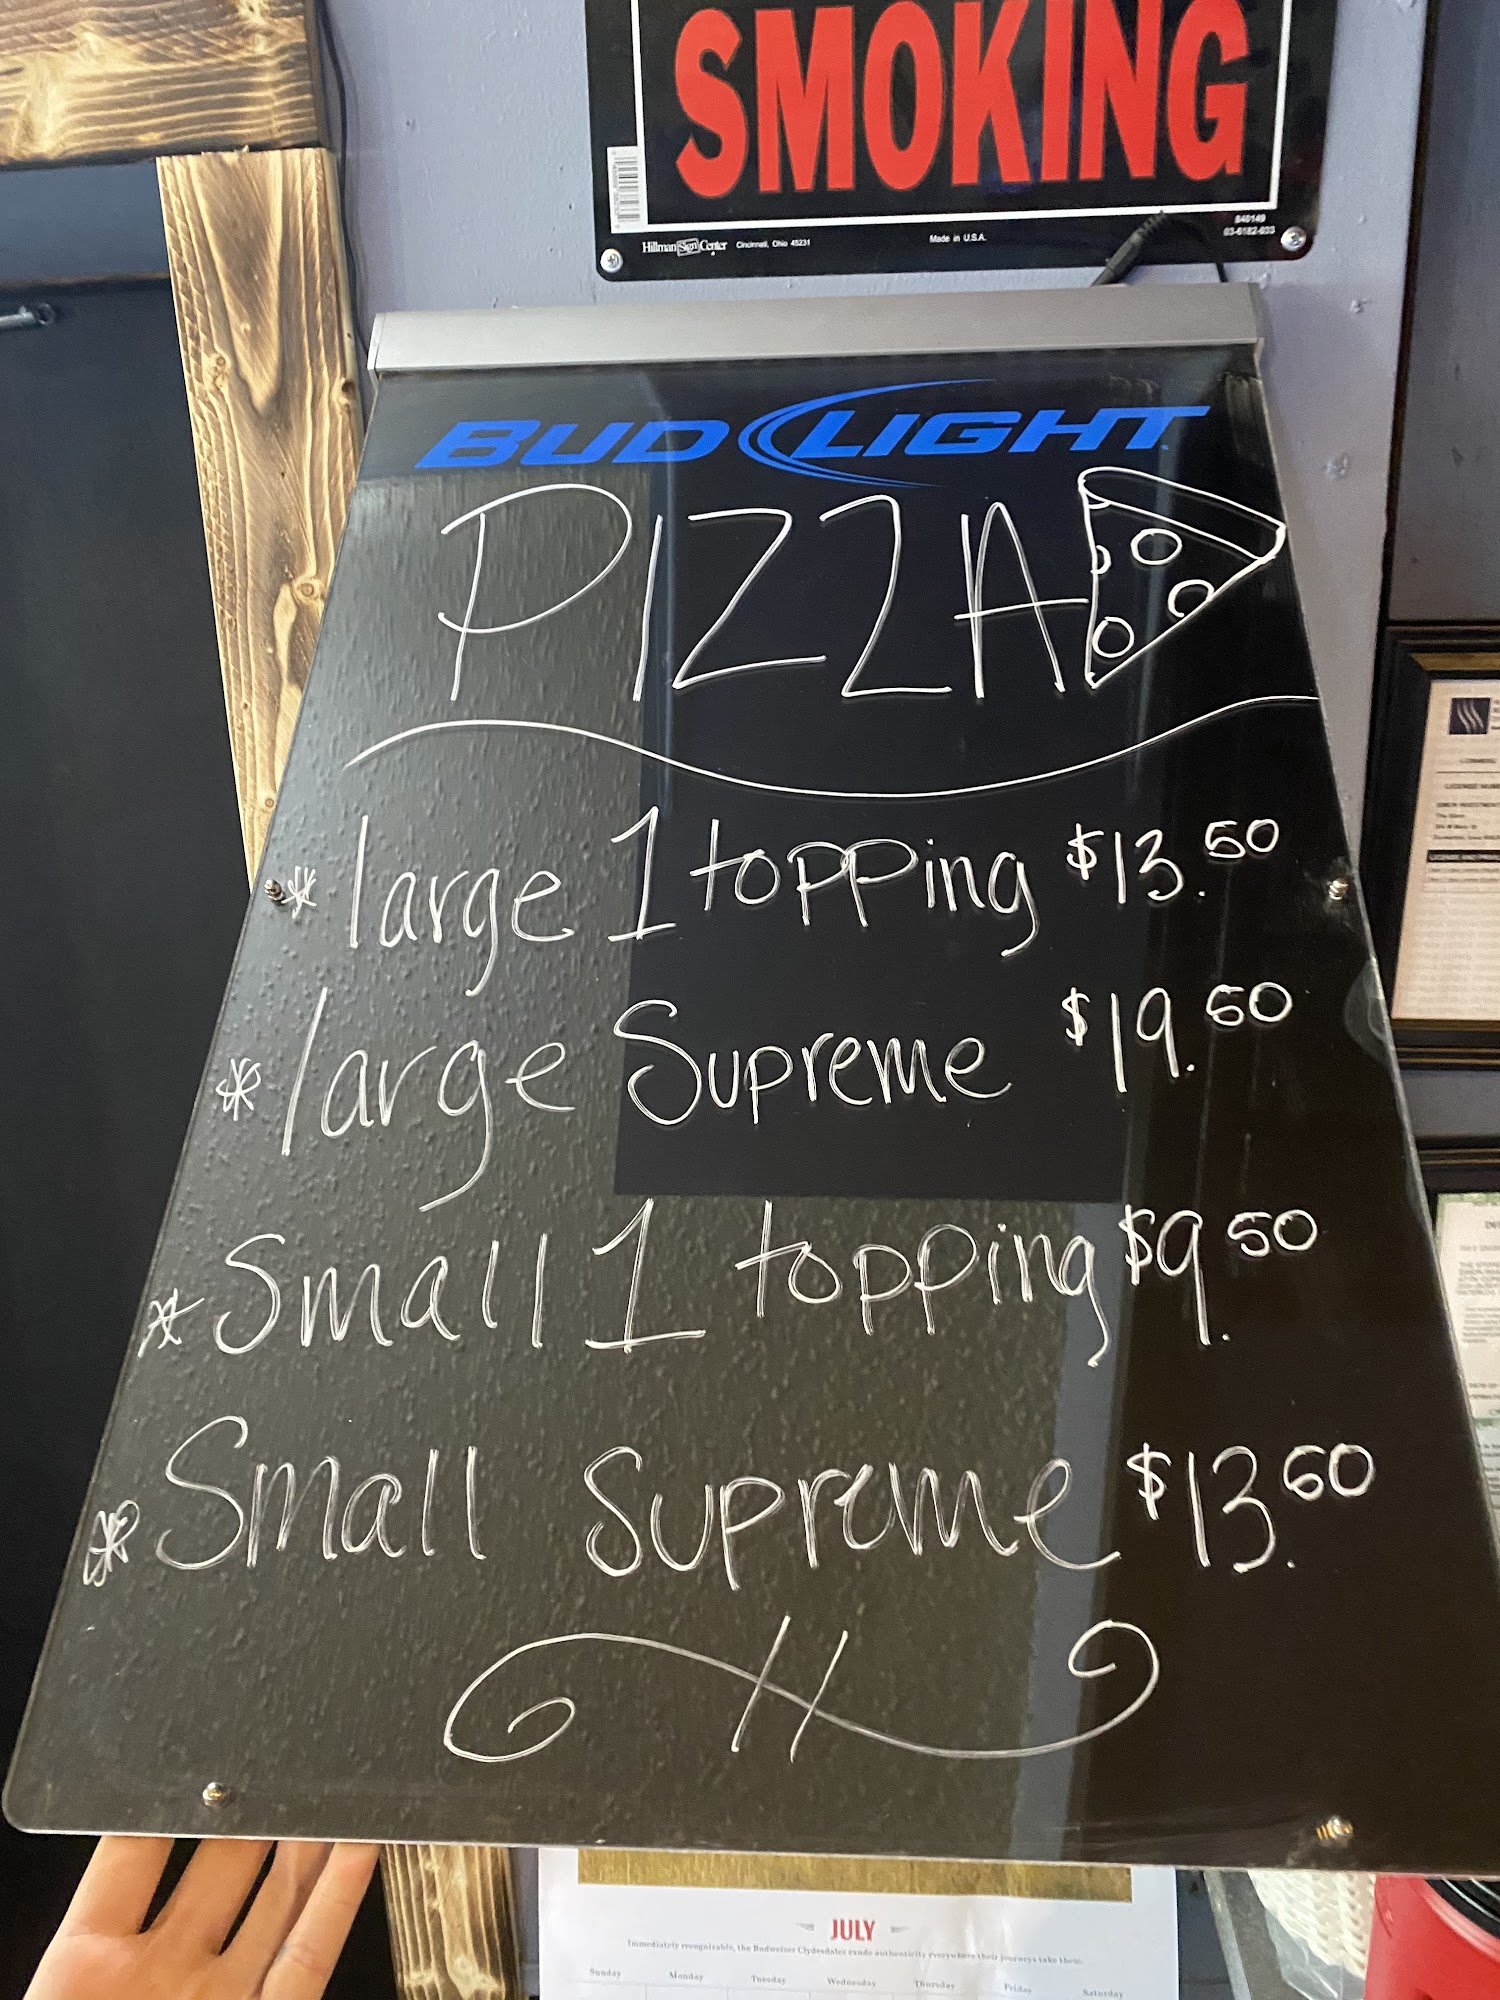 SMOKING
Hillman Sign Center Cincinnati, Ohio 45231 Made in U.S.A. 840149
03-6182-933
BUD LIGHT
PIZZA
* large 1 topping $13.50
* large Supreme $19.50
* Small 1 topping $9.50
* Small Supreme $13.50
JULY
Immediately recognizable, the Budweiser Clydesdales exude authenticity everywhere their journeys take them.
Sunday Monday Tuesday Wednesday Thursday Friday Saturday